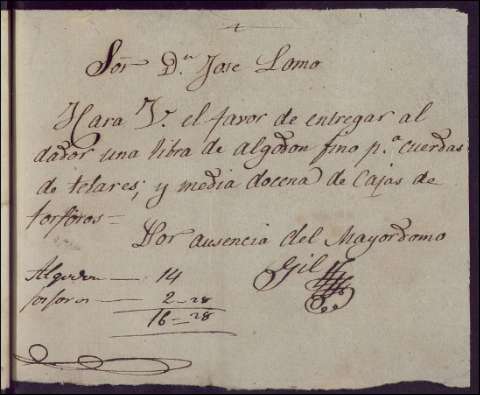 Sōr Dⁿ Jose Lomo
Hara V. el favor de entregar al
dador una libra de algodon fino p.ª cuerdas
de telares; y media docena de Cajas de
forforos =
Por ausencia del Mayordomo
Gil
Algodon — 14
forforos — 2=28
16=28